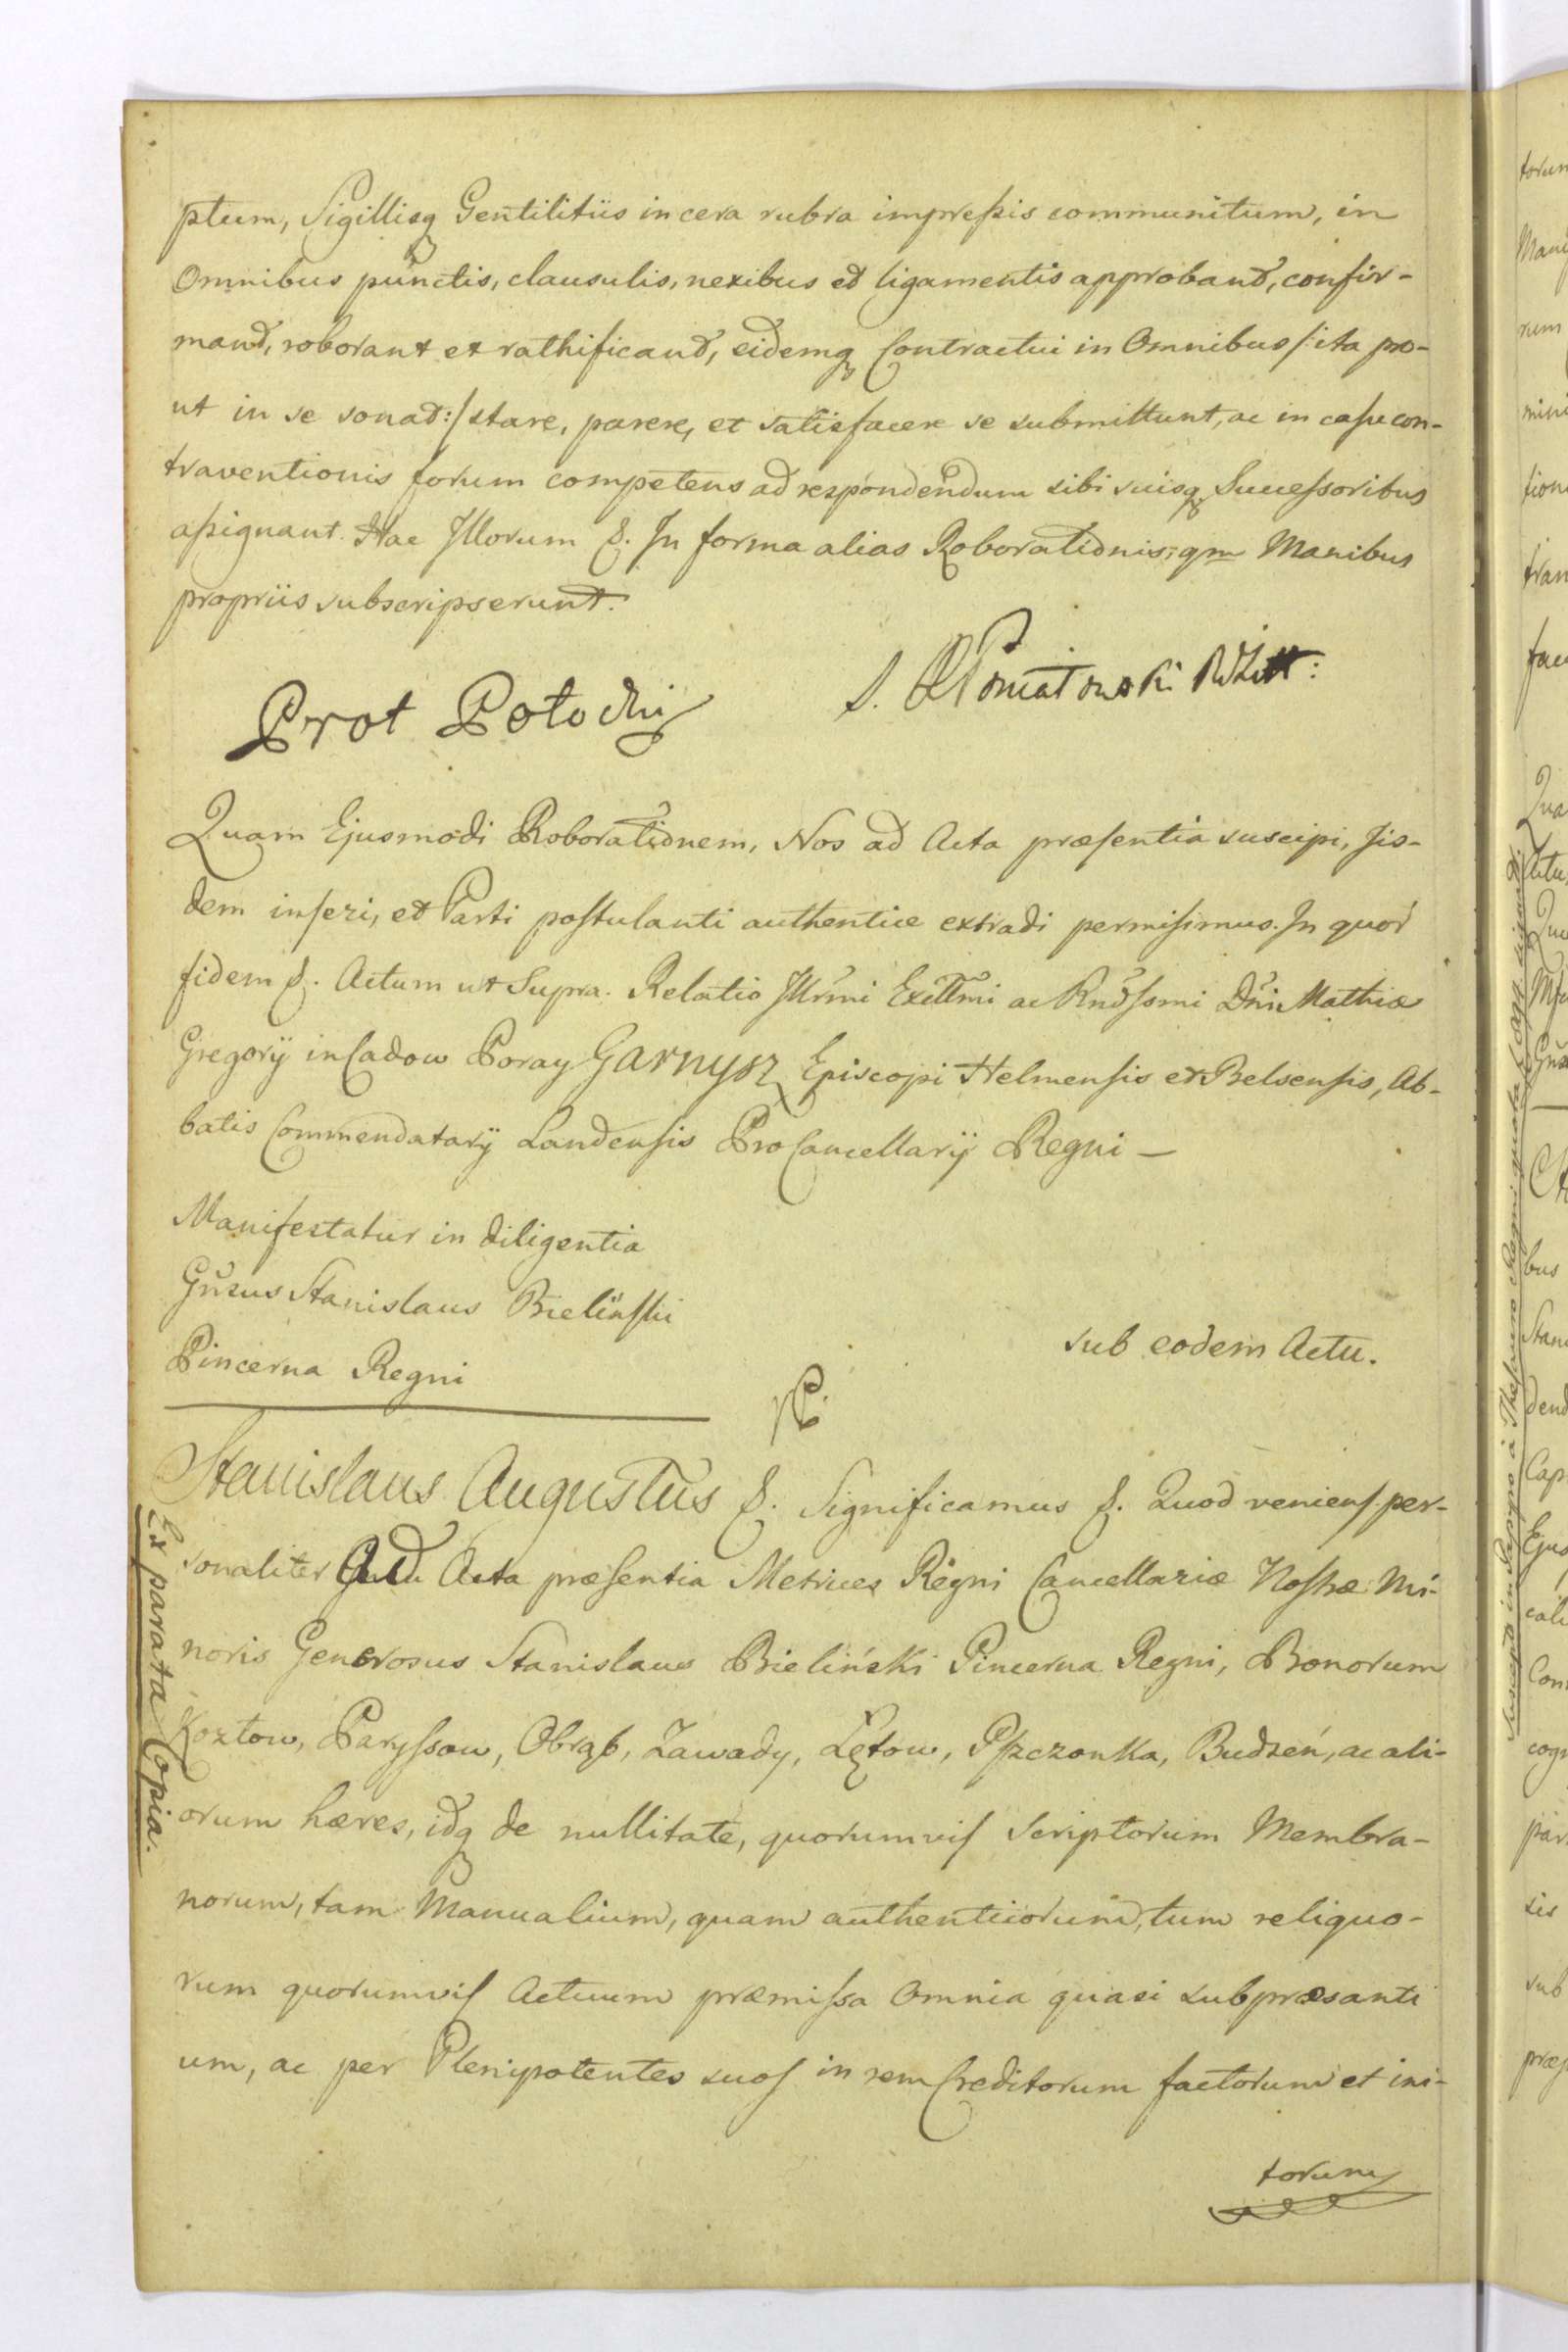 ptum, Sigillisq Gentilitiis in cera rubra impressis communitum, in
Omnibus punctis, clausulis, nexibus et ligamentis approbant, confir-
mant, roborant et rathificant, eidemq Contractui in Omnibus /: ita pro-
ut in se sonat :/ stare, parere, et satisfacere se submittunt, ac in casu con-
traventionis forum competens ad respondendum sibi suisq Successoribus
assignant. Hac Illorum &. In forma alias Roborationis, qm Manibus
propriis subscripserunt.
Prot Potocki
S. Poniatowski
Quam Ejusmodi Roborationem, Nos ad Acta præsentia suscipi, Jis-
dem inseri, et Parti postulanti authentice extradi permisimus. In quor
fidem &. Actum ut Supra. Relatio Illrmi Excllmi ac Rndssmi Dni Mathiæ
Gregorij in Cadow Poray Garnysz Episcopi Helmensis et Belsensis, Ab-
batis Commendatarij Landensis ProCancellarij Regni —
Manifestatur in diligentia
Gnrsus Stanislaus Bielinski
Pincerna Regni
sub eodem Actu.
Stanislaus Augustus &. Significamus &. Quod veniens per-
sonaliter Ad Acta præsentia Metrices Regni Cancellariæ Nostræ Mi-
noris Generosus Stanislaus Bieliński Pincerna Regni, Bonorum
Kozłow, Paryssow, Obrąb, Zawady, Łętow, Pszczonka, Budzeń, ac ali-
orum hæres, idq de nullitate, quorumvis Scriptorum Membra-
norum, tam Manualium, quam authenticorum, tum reliquo-
rum quorumvis Actuum præmissa Omnia quasi subpræsanti
um, ac per Plenipotentes suos in rem Creditorum factorum et ini-
torum
Ex parata Copia.